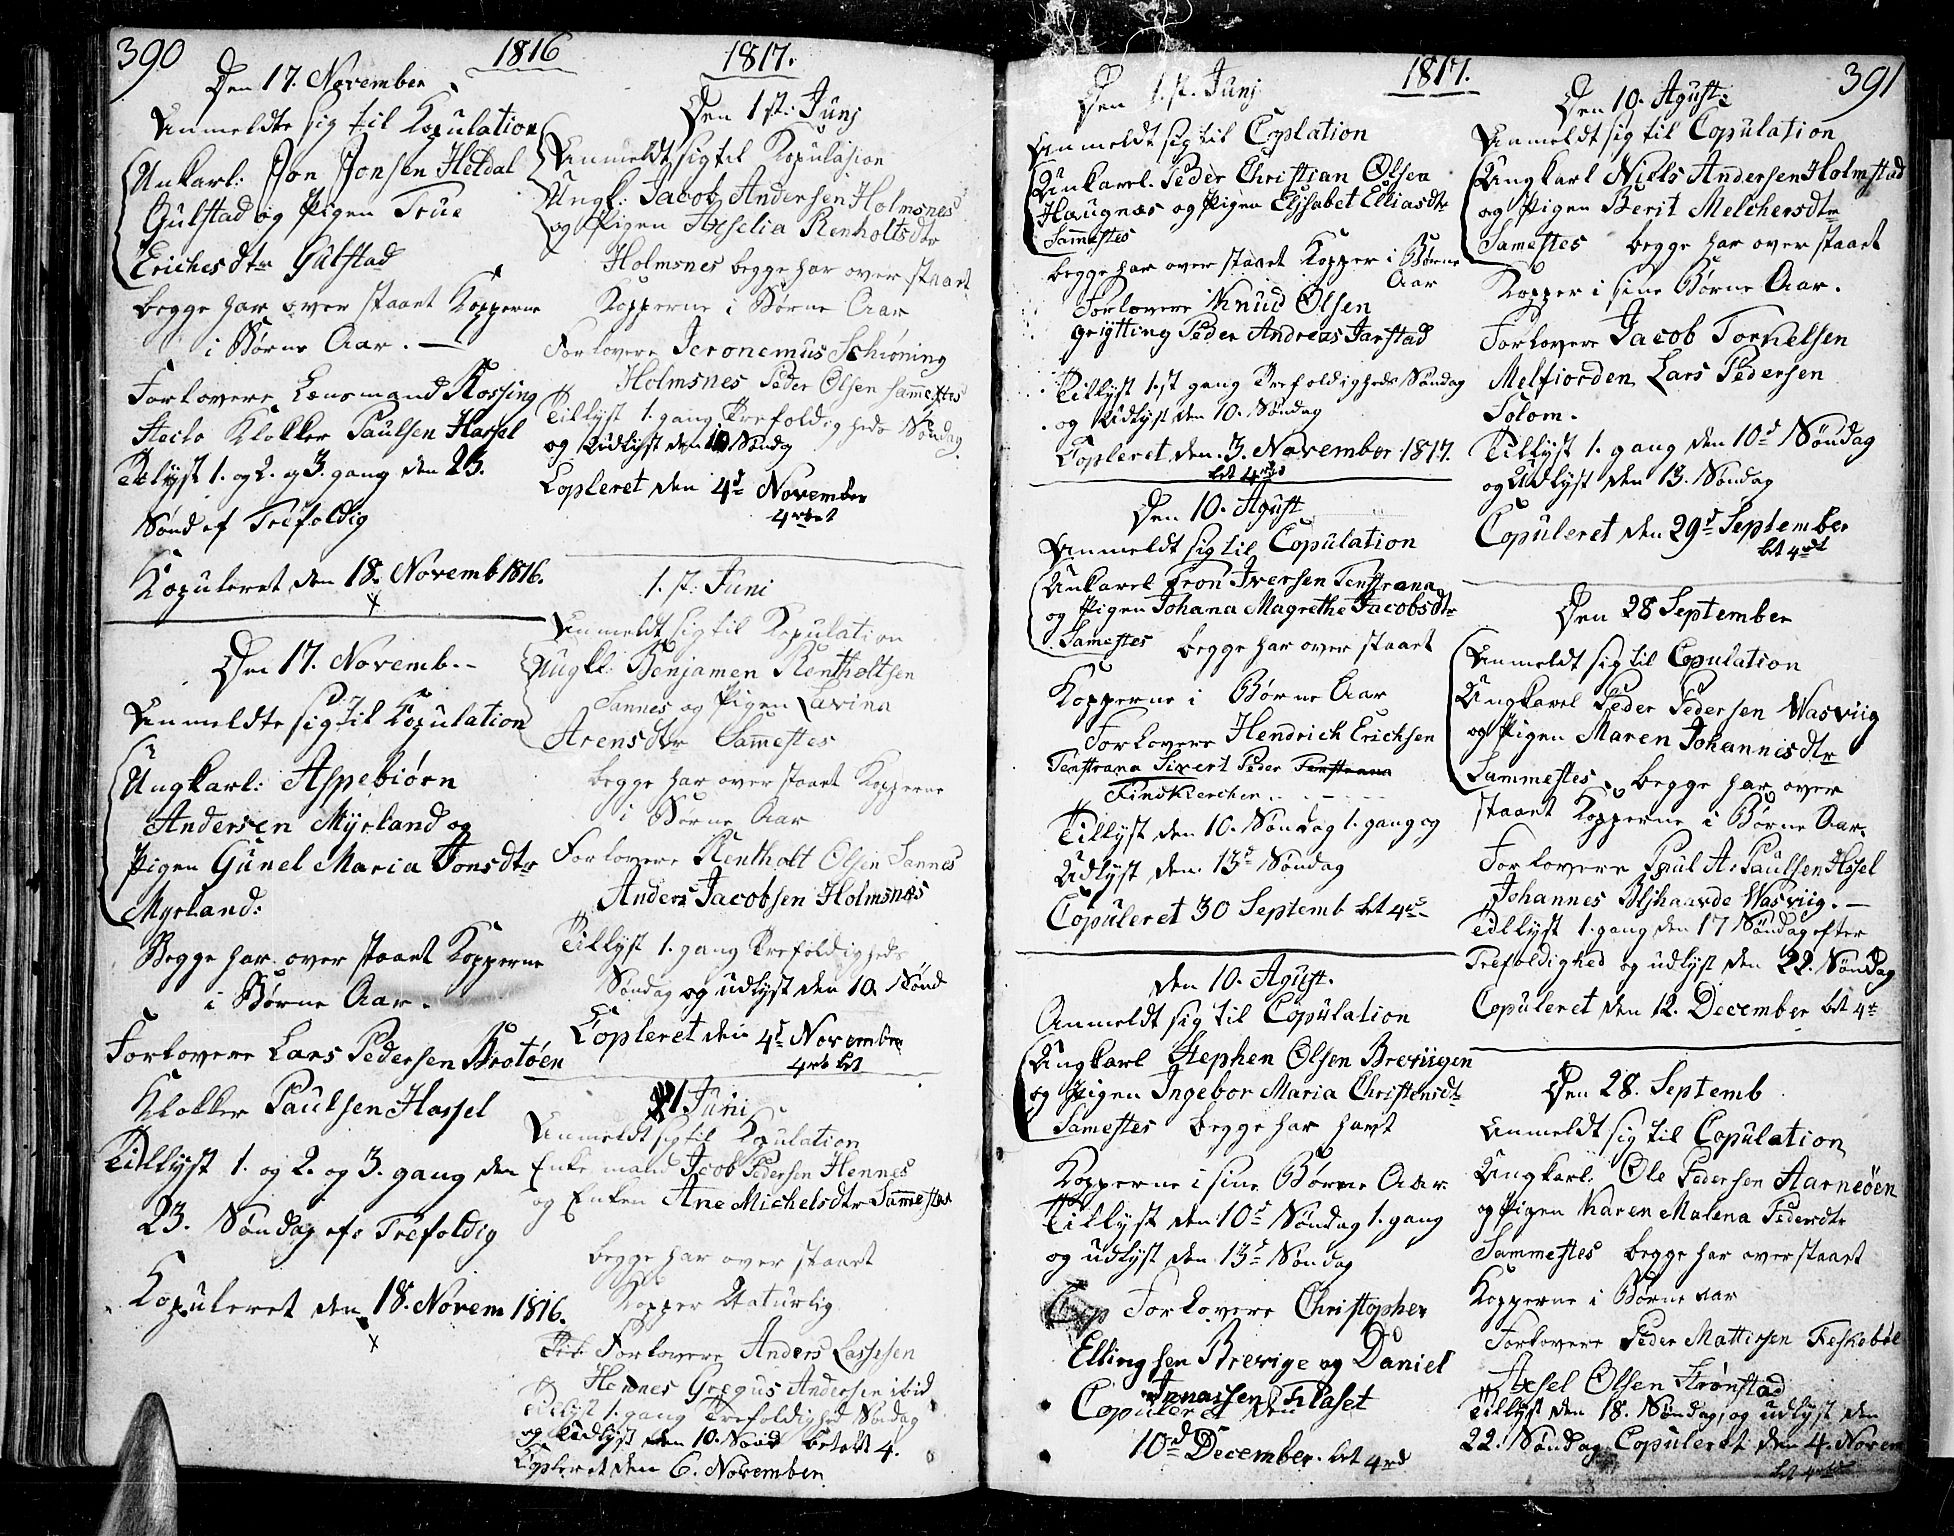 390
1816
Den 17. November
Anmeldte sig til Kopulation
Unkarl: Jon Jonsen Heldal
Gulstad og Pigen True
Erichesdtr Gulstad
begge har over staaet Kopperne
i Børne Aar. —
Forlovere Lensmand Rossing
Steilo Klokker Paulsen Hassel
Telyst 1. og 2. og 3. gang den 23.
Sønd ef Trefoldig
Kopuleret den 18. Novemb 1816.
Den 17. Novemb. -
Anmeldte sig til Kopulation
Ungkarl: Aspebiørn
Andersen Myrland og
Pigen Gunel Maria Jonsdtr
Myrland:
Begge har over staaet Kopperne
i Børne Aar.
Forlovere Lars Pedersen Brotøen
Klokker Paulsen Hassel
Tillyst 1. og 2. og 3. gang den
23. Søndag ef: Trefoldig
Kopuleret den 18. Novem 1816.
1817.
Den 1 st: Junj
Anmeldt sig til Kopulasion
Ungk: Jacob Andersen Holmsnes
og Pigen Asselia Renholtsdtr
Holmsnes begge har over staaet
Kopperne i Børne Aar
Forlovere Jeronemus Schiøning
Holmsnes Peder Olsen Sammestes
Tillyst 1. gang Trefoldigheds Søndag
og Udlyst den 10 Søndg
Copleret den 4d November
4rbet
1. st: Juni
Anmeldt sig til Kopulation
Ungkl: Benjamen Rentholtsen
Sannes og Pigen Lavina
Arensdtr Sammestes
begge har over staaet Kopperne
i Børne Aar
Forlovere Rentholt Olsen Sannes
Anders Jacobsen Holmsnæs
Tillyst 1. gang Trefoldigheds
Søndag og udlyst den 10. Sønd
Copleret den 4d November
4rd bet
1 Juni
Anmeldt sig til Kopulation
Enke mand Jcob Pedersen Hennes
og Enken Ane Michelsdtr Sammestes
begge har over staaet
Kopper Naturlig
Forlovere Anders Lassesen
Hennes Gregus Andersen ibid
Tillyst 1. gang Trefoldighed Søndag
og Udlyst den 10. Sønd betalt 4.
Copleret den 6. November
1817.
391
Den 1. st. Junj
Anmeldt sig til Coplation
Unkarl. Peder Christian Olsen
Haugnæs og Pigen Elisabet Elliasdtr
Sammestes
begge har over staaet Kopper i Børne
Aar
Forlovere Knud Olsen
Grytting Peder Andreas Jarstad
Tillyst 1st gang Trefoldigheds Søndag
og Udlyst den 10. Søndag
Copleret den 3 November 1817.
bet 4rd
Den 10. Agust
Anmeldt sig til Copulation
Unkarl Tron Iversen Tenstrana
og Pigen Johana Magrethe Jacobsdtr
Samestes begge har over staaet
Kopperne i Børne Aar
Forlovere Hendrich Erichsen
Tenstrana Sivert Peder Tenstrana
Findkierchen
Tillyst den 10. Søndag 1. gang og
Udlyst den 13d Søndag
Copuleret 30 Septemb bet 4d
den 10. Agust.
Anmeldt sig til Copulation
Ungkarl Stephen Olsen Breviigen
og Pigen Ingebor Maria Christensdtr
Samestes begge har havt
Kopperne i sine Børne Aar
Tillyst den 10d Søndag 1. gang
og udlyst den 13d Søndag
Forlovere Christopher
Ellingsen Brevige og Daniel
Jonassen Flaset
Copuleret den
10d December. bet 4rd
Den 10. Agust:
Anmeldt sig til Copulation
Ungkarl Niels Andersen Holmstad
og Pigen Berit Melchersdtr
Samestes begge har over staaet
Kopper i sine Børne Aar.
Forlovere Jacob Tornelsen
Melfiorden Lars Pedersen
Folom.
Tillyst 1. gang den 10d Søndag
og Udlyst den 13. Søndag
Copuleret den 29d September
bet 4rd
Den 28 September
Anmeldt sig til Copulation
Ungkarl Peder Pedersen Wasviig
og Pigen Maren Johannisdtr
Sammestes. begge har over
staaet Kopperne i Børne Aar.
Forlovere Poul A: Paulsen Hssel
Johannes Blshaarde Wasviig. —
Tillyst 1. gang den 17 Søndag efter
Trefoldighed og udlyst den 22. Søndag
Copuleret den 12. December bet 4r
Den 28. Septemb
Anmeldt sig til Copulation
Ungkarl. Ole Pedersen Aarneøen
og Pigen Karen Malena Pedersdtr
Sammestes begge har over staaet
Kopperne i Børne aar
Forlovere Peder Mattissen Feskebøl
Axsel Olsen Strønstad
Tillyst den 18. Søndag, og udlyst den
22. Søndag Copuleret den 4. Novem
bet 4rd